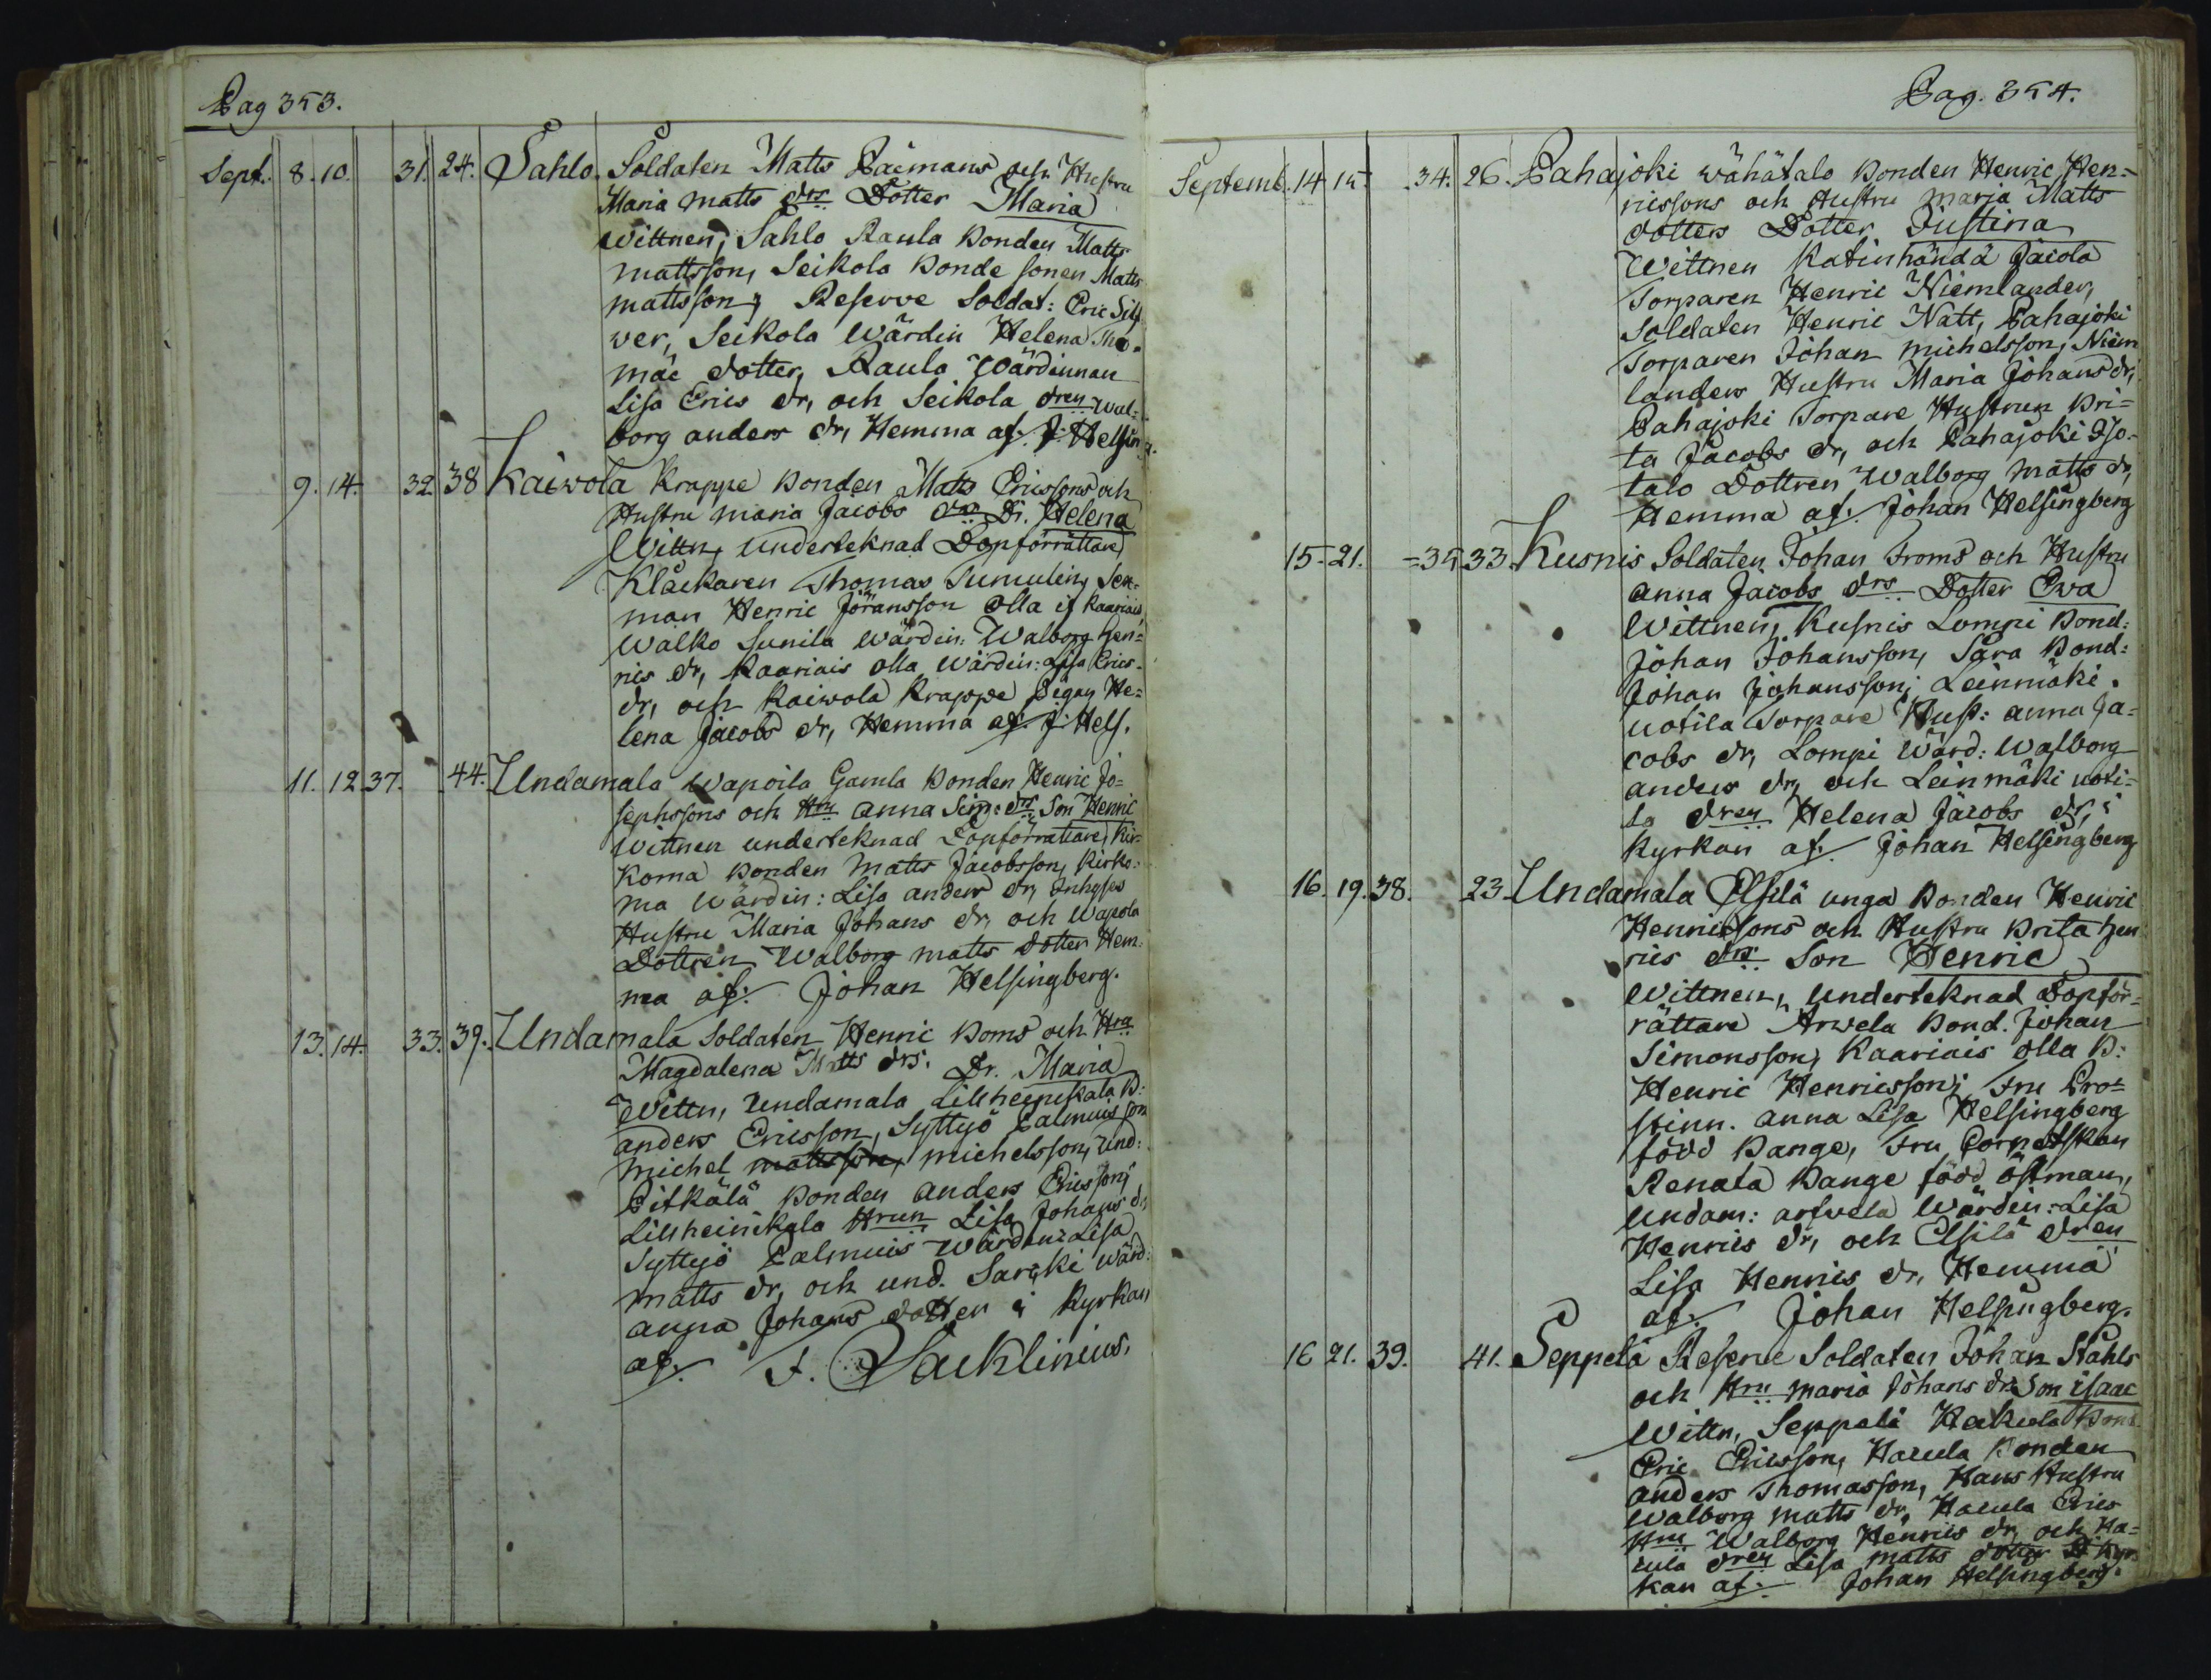 Pag 353.
Sept. 8. 10. 31. 24. Sahlo Soldaten Matts Raimans och Hustru
Maria matts drs Dotter Maria
Wittnen, Sahlo Raula Bonden Matts
mattsson, Seikola Bonde sonen Matts
mattsson; Reserve Soldat: Eric Silf
wer, Seikola Wärdin Helena Tho-
mæ dotter, Raula Wärdinnan
Lisa Erics dr, och Seikola dren Wal-
borg anders dr, Hemma af. J. Helsin
9. 14. 32. 38 Kaiwola Krappe Bonden Matts Ericssons och
Hustru maria Jacobs drs Dr. Helena
Wittn, underteknad Dopförrättare
Klåckaren Thomas Tumulin, Sex-
man Henric Jöransson Olla if Kaariais,
Walko Junila Wärdin: Walborg Hen-
rics dr, Kaariais Olla Wärdin: Lisa Erics
dr, och Kaiwola Krappe Pigan He-
lena Jacobs dr, Hemma af. J. Hels.
11. 12 37. 44. Undamala Wapoila Gamla Bonden Henric Jo-
sephssons och Hru Anna Sim: drs Son Henric
Wittnen underteknad Dopförrättare, Kir-
koma Bonden Matts Jacobsson, Kirko-
ma Wärdin: Lisa anders dr, Inhyses
Hustru Maria Johans dr, och Wapola
Dottren Walborg matts dotter Hem-
ma af. Johan Helsingberg.
13. 14. 33. 39. Undamala Soldaten Henric Boms och Hru
Magdalena Matts drs. Dr. Maria
Wittn, Undamala Lillheinikala B:
anders Ericsson, Syttyö Palmuis son
Michel mattsson, michelsson, Und:
Pitkälä Bonden anders Ericsson;
Lillheinikala Hrun Lisa Johans dr,
Syttyö Palmuis Wärdin: Lisa
matts dr, och und. Sarcki wärd:
anna Johans dotter i Kyrkan
af. F. Sacklinius.
Pag. 354.
Septemb. 14 15. 34. 26. Pahajoki Wähätalo Bonden Henric Hen-
ricssons och Hustru maria Matts
dotters Dotter Justina
Wittnen Katinhändä Jacola
Torparen Henric Niemlander,
Soldaten Henric Natt, Pahajoki
Torparen Johan michelsson; Niem
landers Hustru Maria Johans dr,
Pahajoki Torpare Hustrun Bri-
ta Jacobs dr, och Pahajoki Iso-
talo Dottren Walborg matts dr,
Hemma af. Johan Helsingberg
15. 21. 35. 33. Kusnis Soldaten Johan Froms och Hustru
anna Jacobs drs Dotter Ewa
Wittnen, Kusnis Lompi Bond:
Johan Johansson, Sara Bond:
Johan Johansson; Leinmäki
uotila Torpare Hust: anna Ja-
cobs dr, Lompi Wärd: Walborg
anders dr, och Leinmäki uoti-
la dren Helena Jacobs dr, i
Kyrkan af. Johan Helsingberg
16. 19. 38. 23. Undamala Elsilä unga Bonden Henric
Henricssons och Hustru Brita Hen
rics drs Son Henric
Wittnen, Underteknad Dopför-
rättare Arwela Bond. Johan
Simonsson, Kaariais Olla B:
Henric Henricsson; Fru Pro-
stinn. anna Lisa Helsingberg
född Bange, Fru Cornetskan
Renata Bange född Östman,
Undam: arfwela Wärdin: Lisa
Henrics dr, och Elsilä dren
Lisa Henrics dr, Hemma
af. Johan Helsingberg.
16 21. 39. 41. Seppelä Reserve Soldaten Johan Ståhls
och Hru maria Johans drs Son isaac
Wittn, Seppälä Hakula Bond
Eric Ericsson, Hacula Bonden
anders Thomasson, Hans Hustru
Walborg matts dr, Hacula Erics
Hru Walborg Henrics dr, och Ha-
cula dren Lisa matts dotter i Kyr
kan af. Johan Helsingberg.